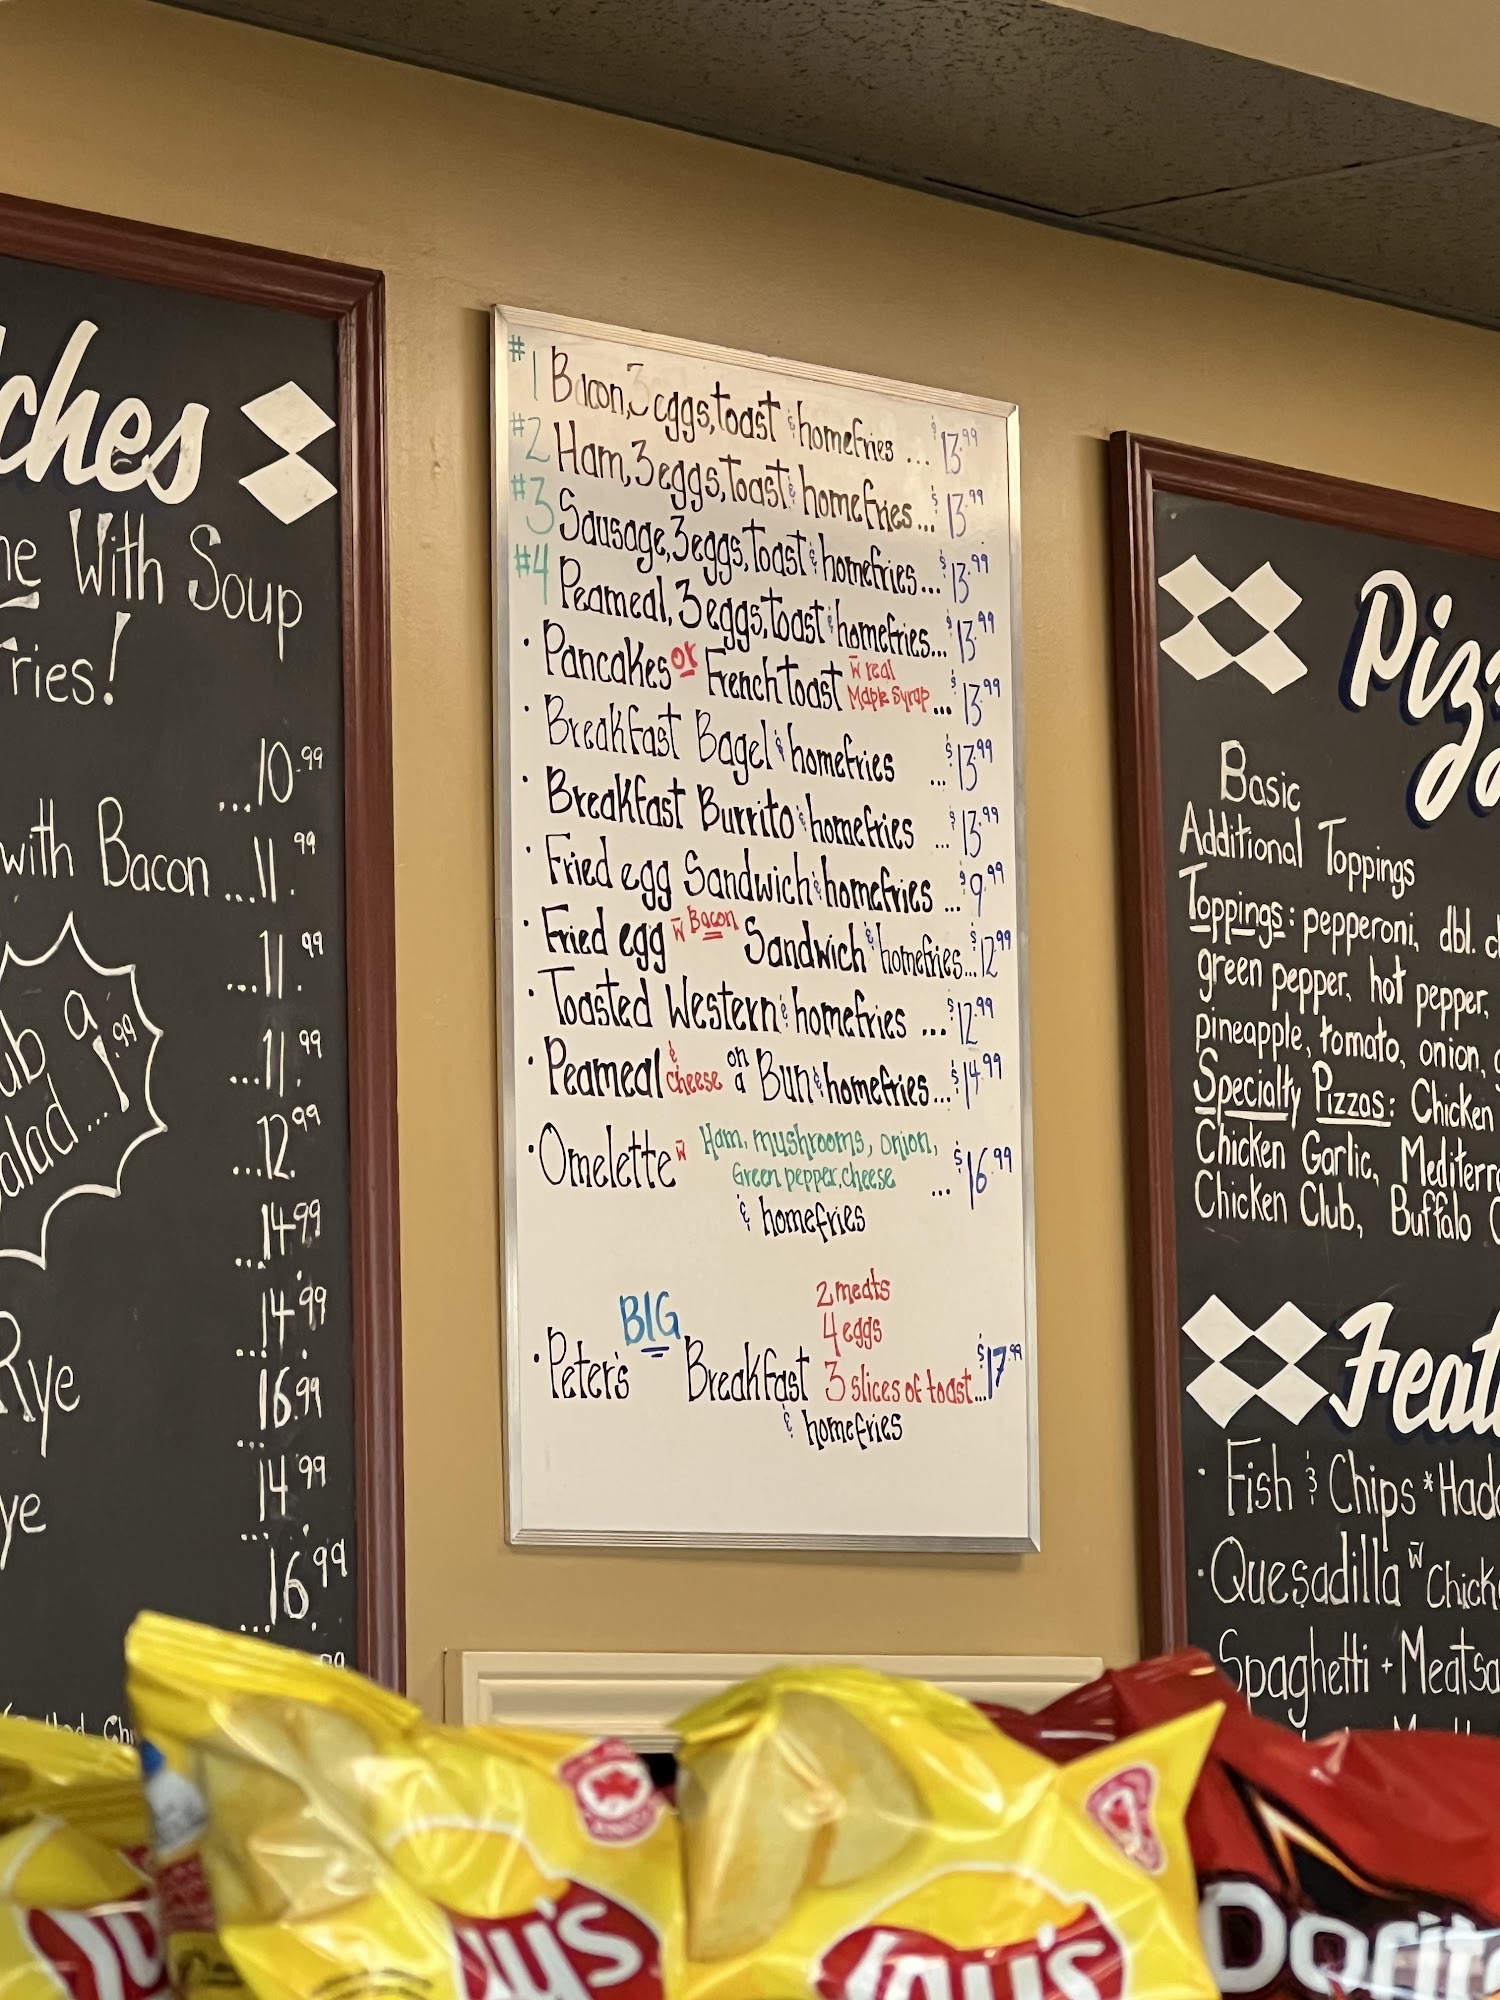 ches
With Soup
ries!
...10.99
with Bacon...11.99
...11.99
...11.99
...12.99
...14.99
...14.99
Rye ...16.99
...14.99
ye
...16.99
#1 Bacon, 3 eggs, toast & homefries ... $13.99
#2 Ham, 3 eggs, Toast & homefries... $13.99
#3 Sausage, 3 eggs, Toast & homefries... $13.99
#4 Peameal, 3 eggs, toast & homefries... $13.99
• Pancakes or French toast w real Maple Syrup ... $13.99
• Breakfast Bagel & homefries ... $13.99
• Breakfast Burrito & homefries ... $13.99
• Fried egg Sandwich & homefries ... $9.99
• Fried egg w Bacon Sandwich & homefries... $12.99
• Toasted Western & homefries ... $12.99
• Peameal & cheese on a Bun & homefries... $14.99
• Omelette w Ham, mushrooms, onion,
Green pepper, cheese ... $16.99
& homefries
2 meats
4 eggs
• Peter's BIG Breakfast 3 slices of toast... $17.99
& homefries
Basic
Additional Toppings
Toppings: pepperoni, dbl.
green pepper, hot pepper,
pineapple, tomato, onion,
Specialty Pizzas: Chicken
Chicken Garlic,
Chicken Club, Buffalo
• Fish & Chips *
• Quesadilla w
Spaghetti +
Lay's
Lay's